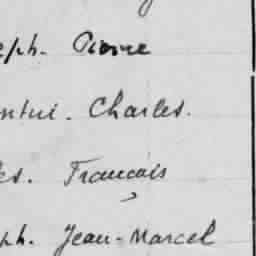 eph. Pierre
ntin. Charles.
es. Francois
ph. Jean-Marcel